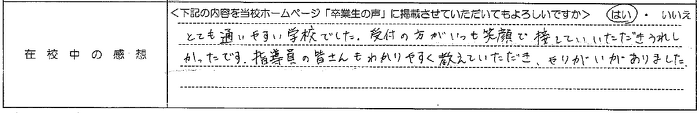 <下記の内容を当校ホームページ「卒業生の声」に掲載させていただいてもよろしいですか> はい ・ いいえ
在校中の感想
とても通いやすい学校でした。受付の方がいつも笑顔で接していただきうれし
かったです。指導員の皆さんもわかりやすく教えていただき、やりがいがありました